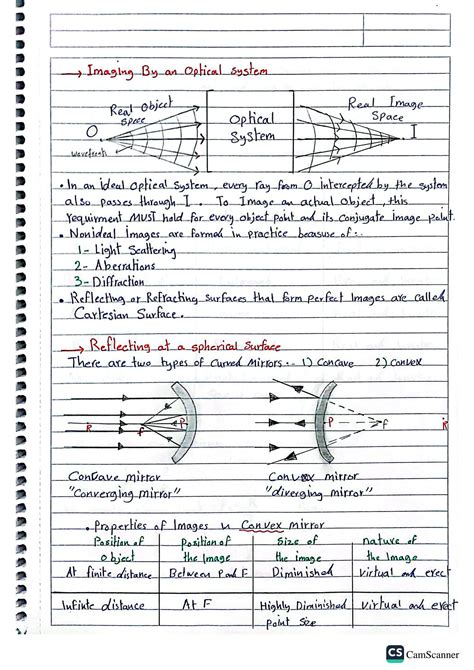 → Imaging By an Optical System
Real Object Space
O
wavefronts
Optical System
Real Image Space
I
• In an ideal Optical System, every ray from O intercepted by the system
also passes through I. To Image an actual Object, this
requirment MUST hold for every object point and its conjugate image point.
• Nonideal images are formed in practice because of :-
1- Light Scattering
2- Aberrations
3- Diffraction
• Reflecting or Refracting Surfaces that form perfect Images are called
Cartesian Surface.
→ Reflecting at a spherical Surface
There are two types of Curved Mirrors :- 1) Concave 2) Convex
R f P
P f R
Concave mirror Convex mirror
"Converging mirror" "diverging mirror"
• Properties of Images in Convex mirror
Position of object | position of the Image | Size of the image | nature of the Image
At finite distance | Between P and F | Diminished | virtual and erect
Infinite distance | At F | Highly Diminished point Size | virtual and erect
CS CamScanner